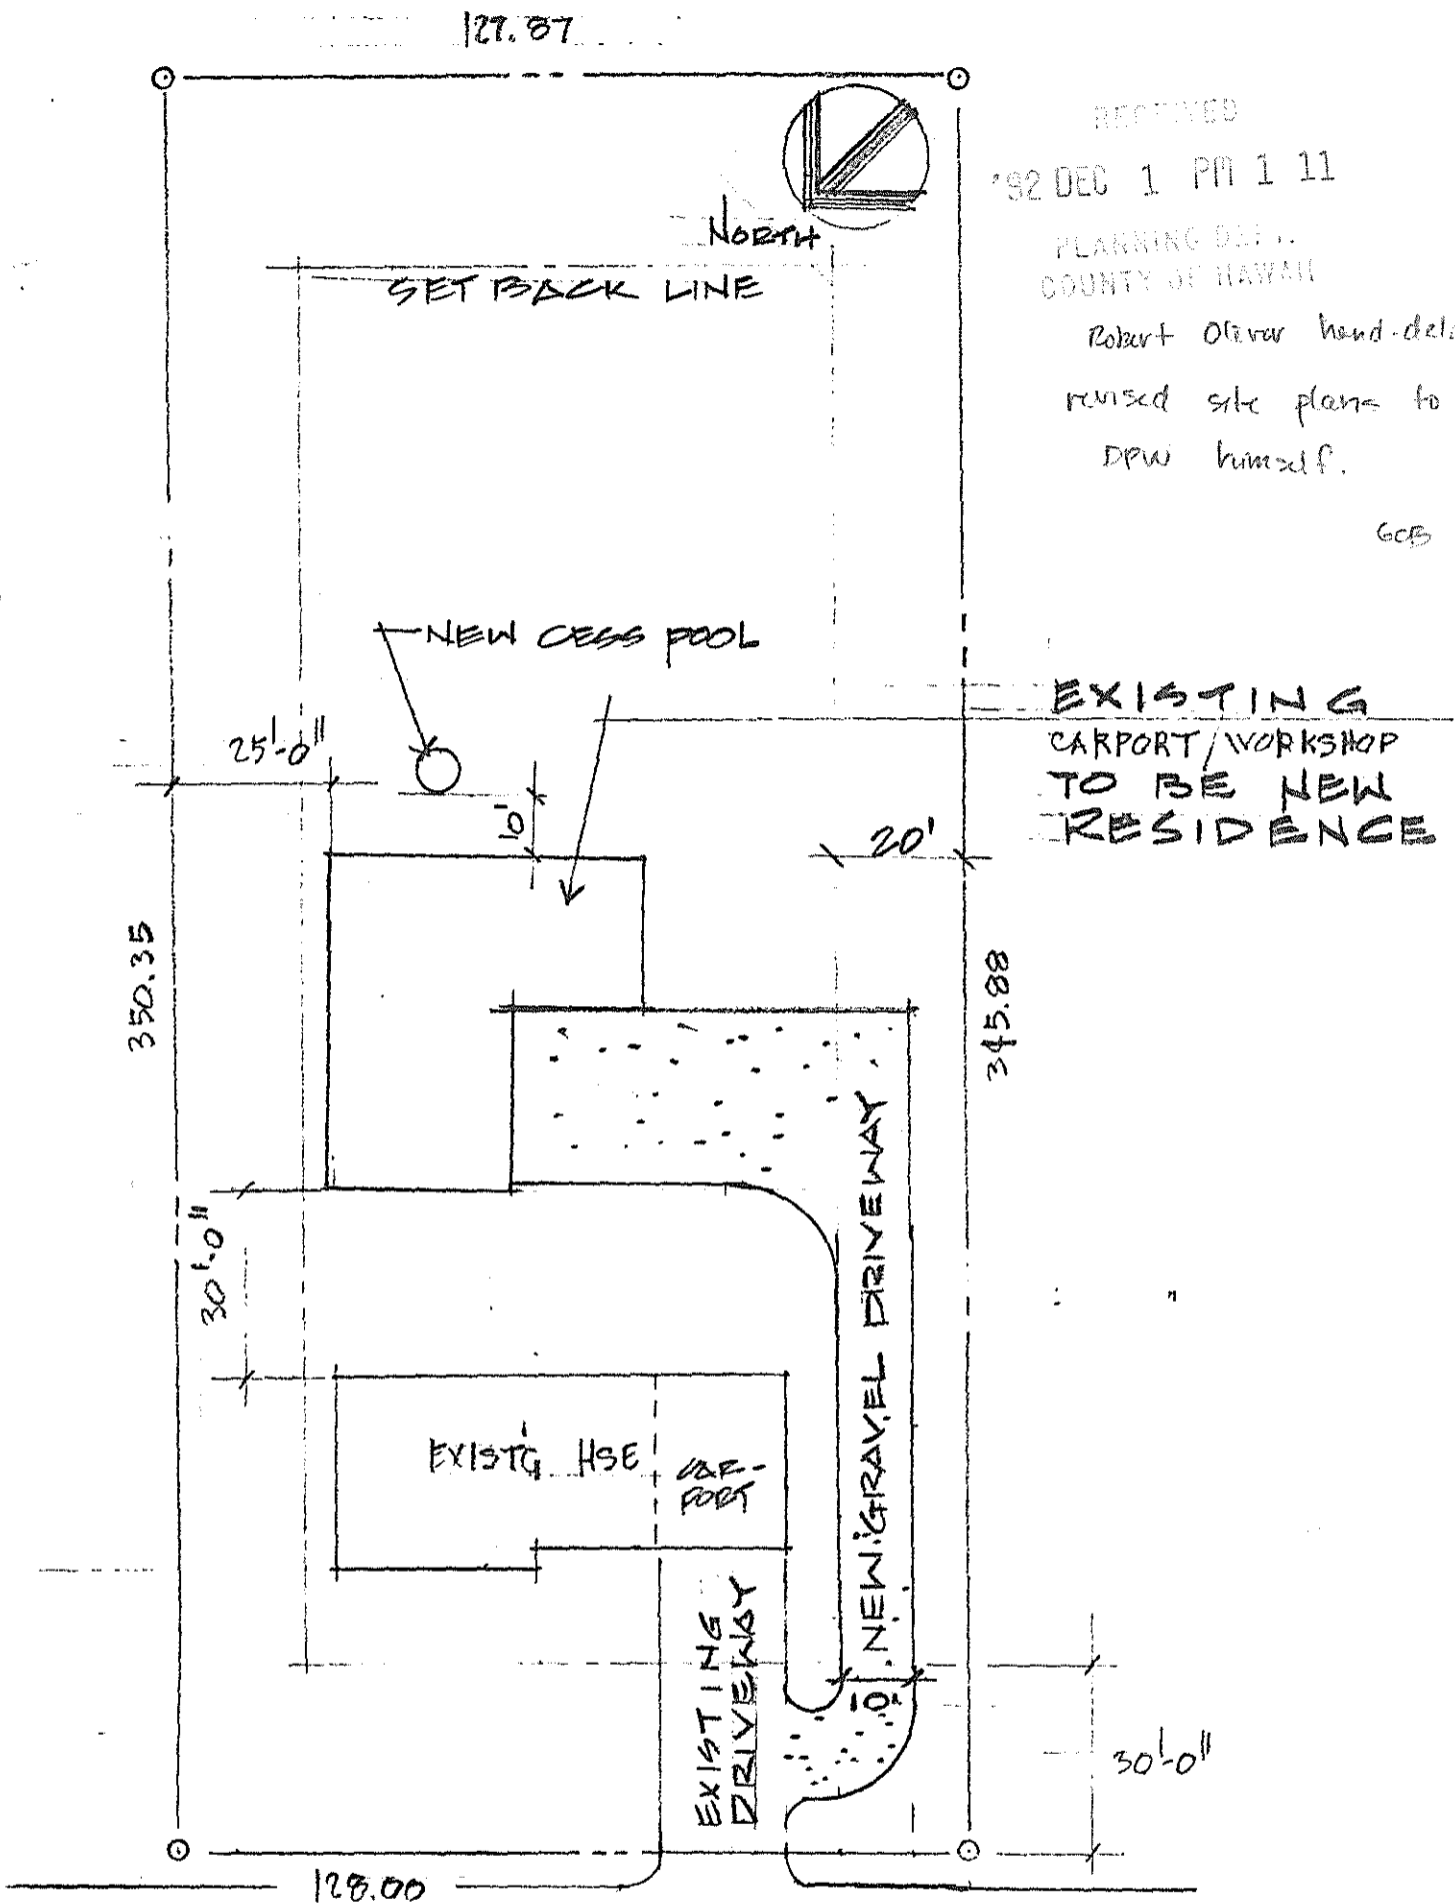 127.87
RECEIVED
'92 DEC 1 PM 1 11
PLANNING DEPT.
COUNTY OF HAWAII
Robert Oliver hand-del
revised site plans to
DPW himself.
GCB
NORTH
SET BACK LINE
NEW CESS POOL
EXISTING
CARPORT/WORKSHOP
TO BE NEW
RESIDENCE
25'-0"
10'
20'
350.35
345.88
30'-0"
NEW GRAVEL DRIVEWAY
EXIST'G HSE
CAR-
PORT
EXISTING
DRIVEWAY
10'
30'-0"
128.00